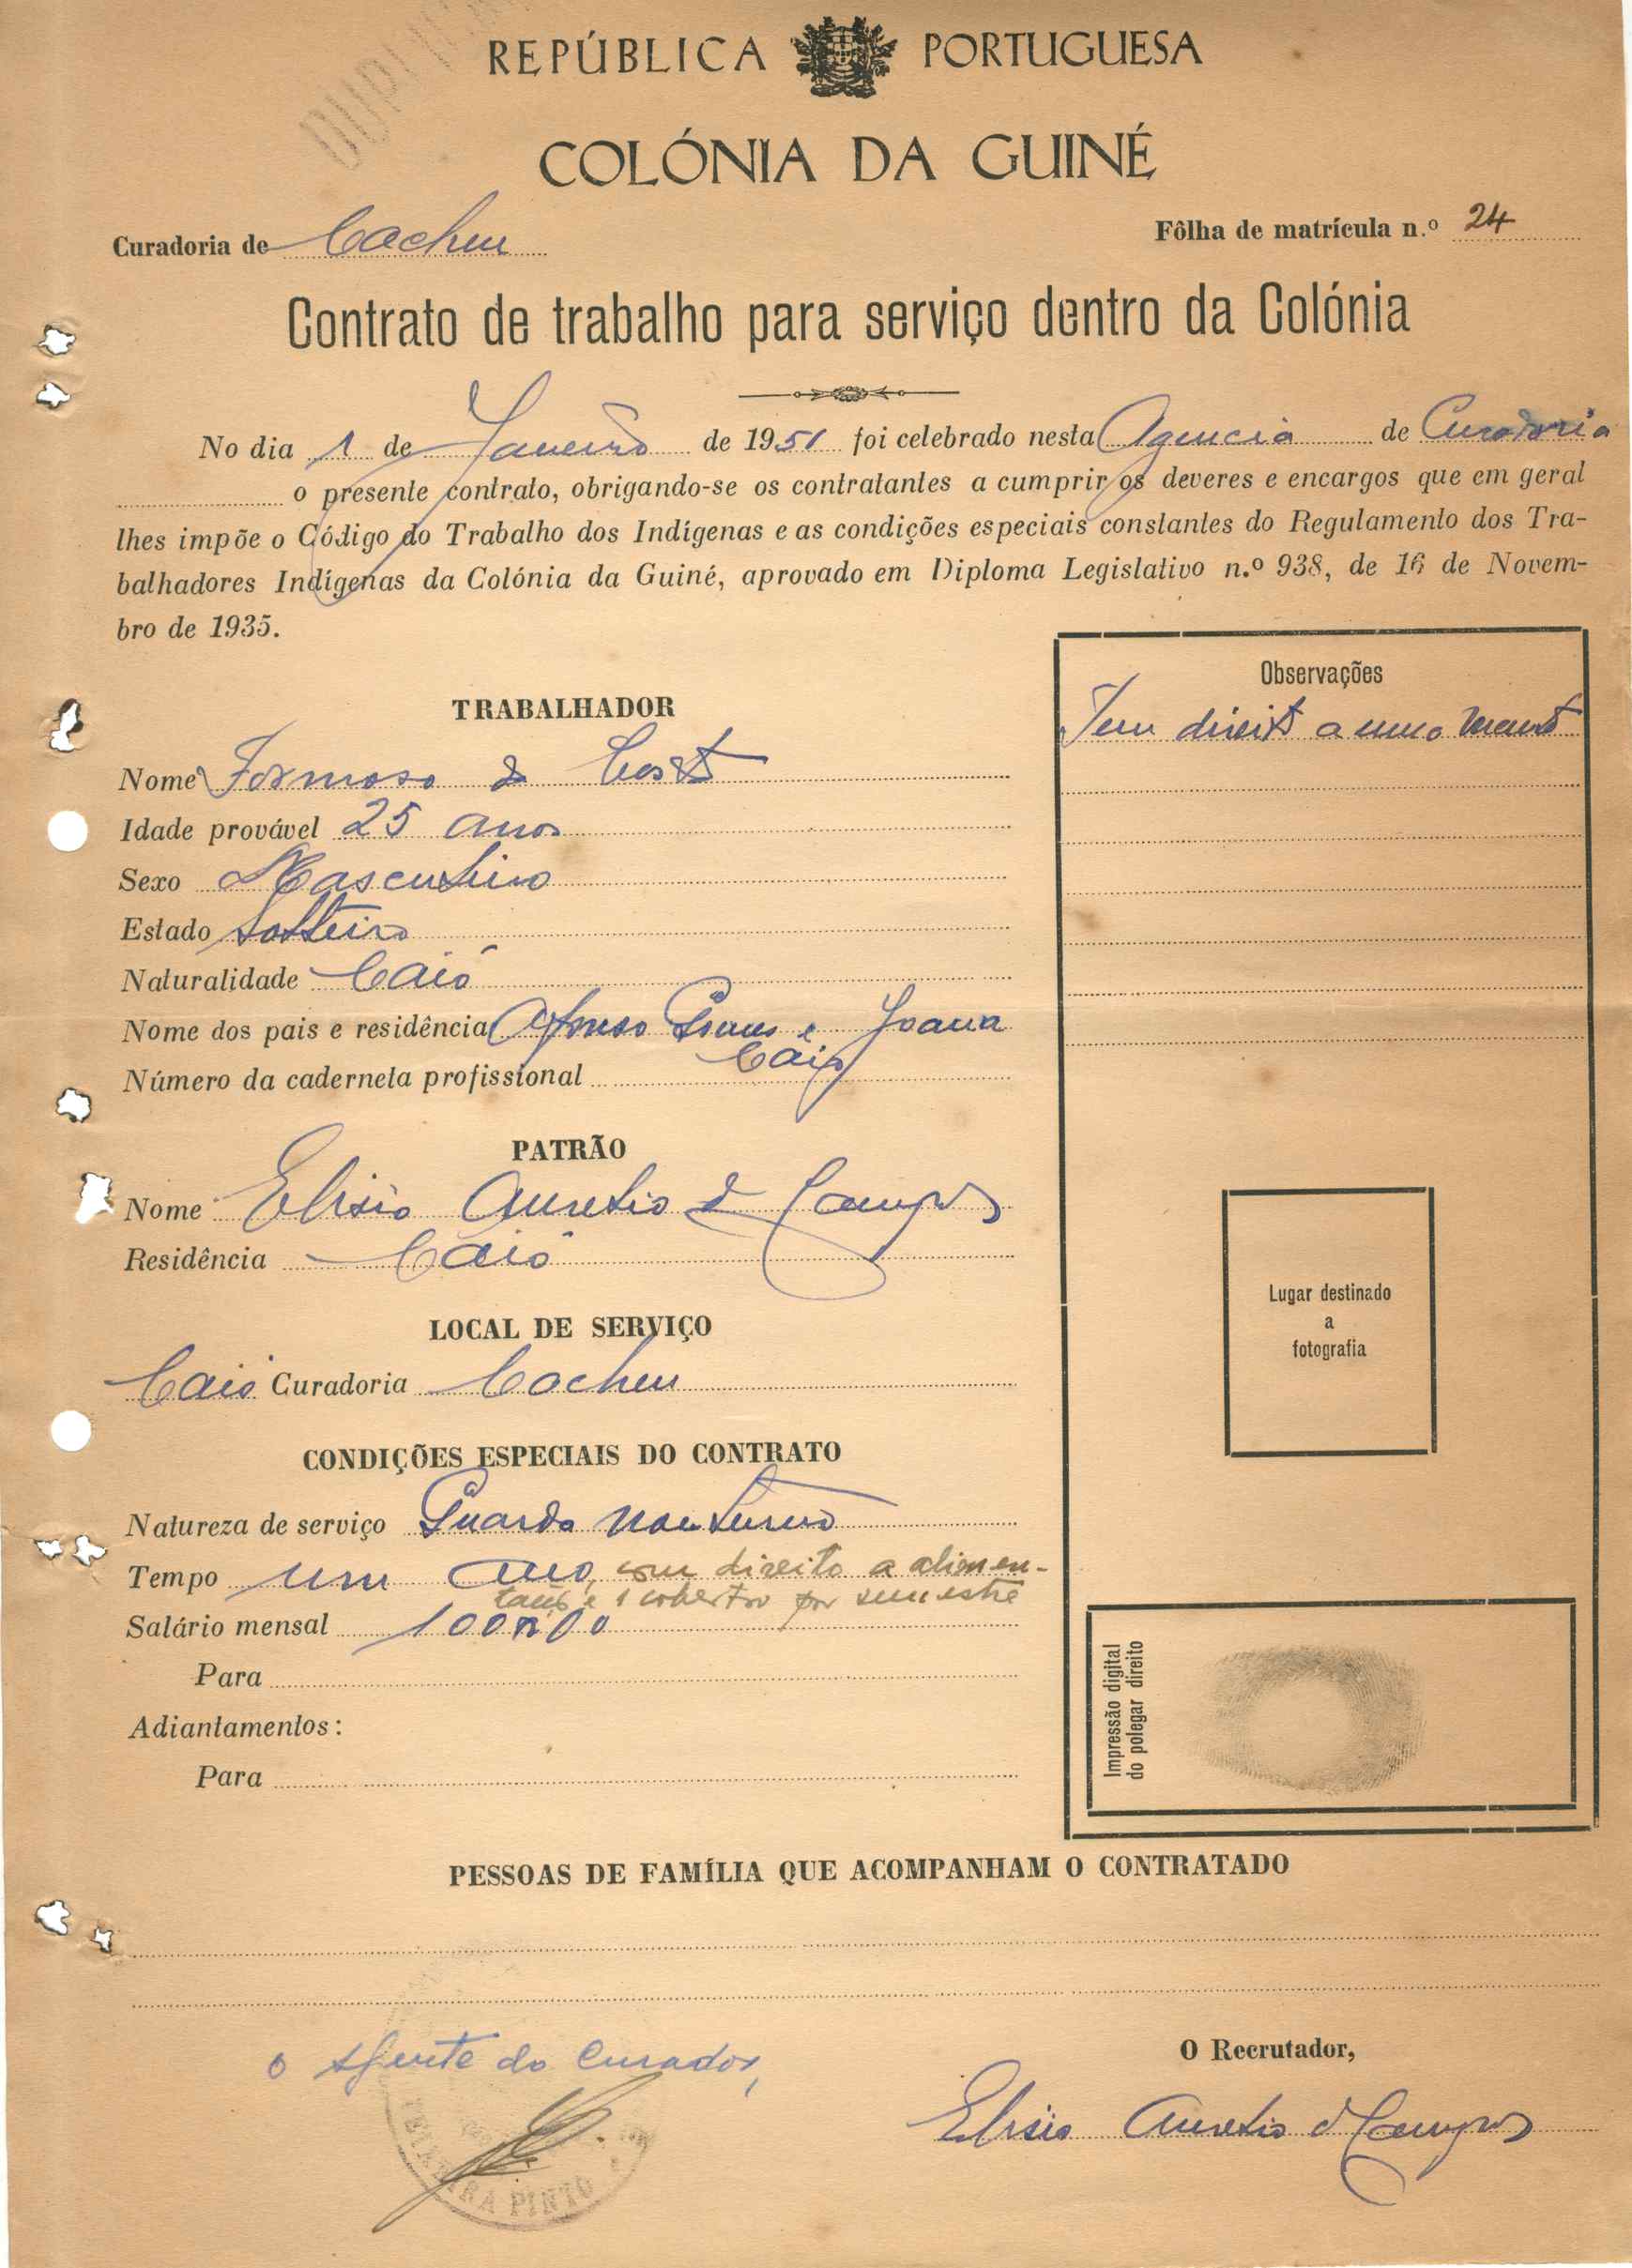 REPÚBLICA PORTUGUESA
COLÓNIA DA GUINÉ
Curadoria de Cacheu
Fôlha de matrícula n.º 24
Contrato de trabalho para serviço dentro da Colónia
No dia 1 de Janeiro de 1951 foi celebrado nesta Agencia de Curadoria
o presente contrato, obrigando-se os contratantes a cumprir os deveres e encargos que em geral
lhes impõe o Código do Trabalho dos Indígenas e as condições especiais constantes do Regulamento dos Tra-
balhadores Indígenas da Colónia da Guiné, aprovado em Diploma Legislativo n.º 938, de 16 de Novem-
bro de 1935.
TRABALHADOR
Nome Formoso da Costa
Idade provável 25 anos
Sexo Masculino
Estado Solteiro
Naturalidade Caió
Nome dos pais e residência Afonso Gomes e Joana
Caió
Número da caderneta profissional
Observações
Tem direito a uma
PATRÃO
Nome Elisio Aurelio d Campos
Residência Caió
LOCAL DE SERVIÇO
Caió Curadoria Cacheu
Lugar destinado
a
fotografia
CONDIÇÕES ESPECIAIS DO CONTRATO
Natureza de serviço Guarda Nocturno
Tempo um ano, com direito a alimen-
tação e 1 cobertor por semestre
Salário mensal 100$00
Para
Adiantamentos:
Para
Impressão digital
do polegar direito
PESSOAS DE FAMÍLIA QUE ACOMPANHAM O CONTRATADO
O Agente do Curador,
TEIXEIRA PINTO
O Recrutador,
Elisio Aurelio d Campos